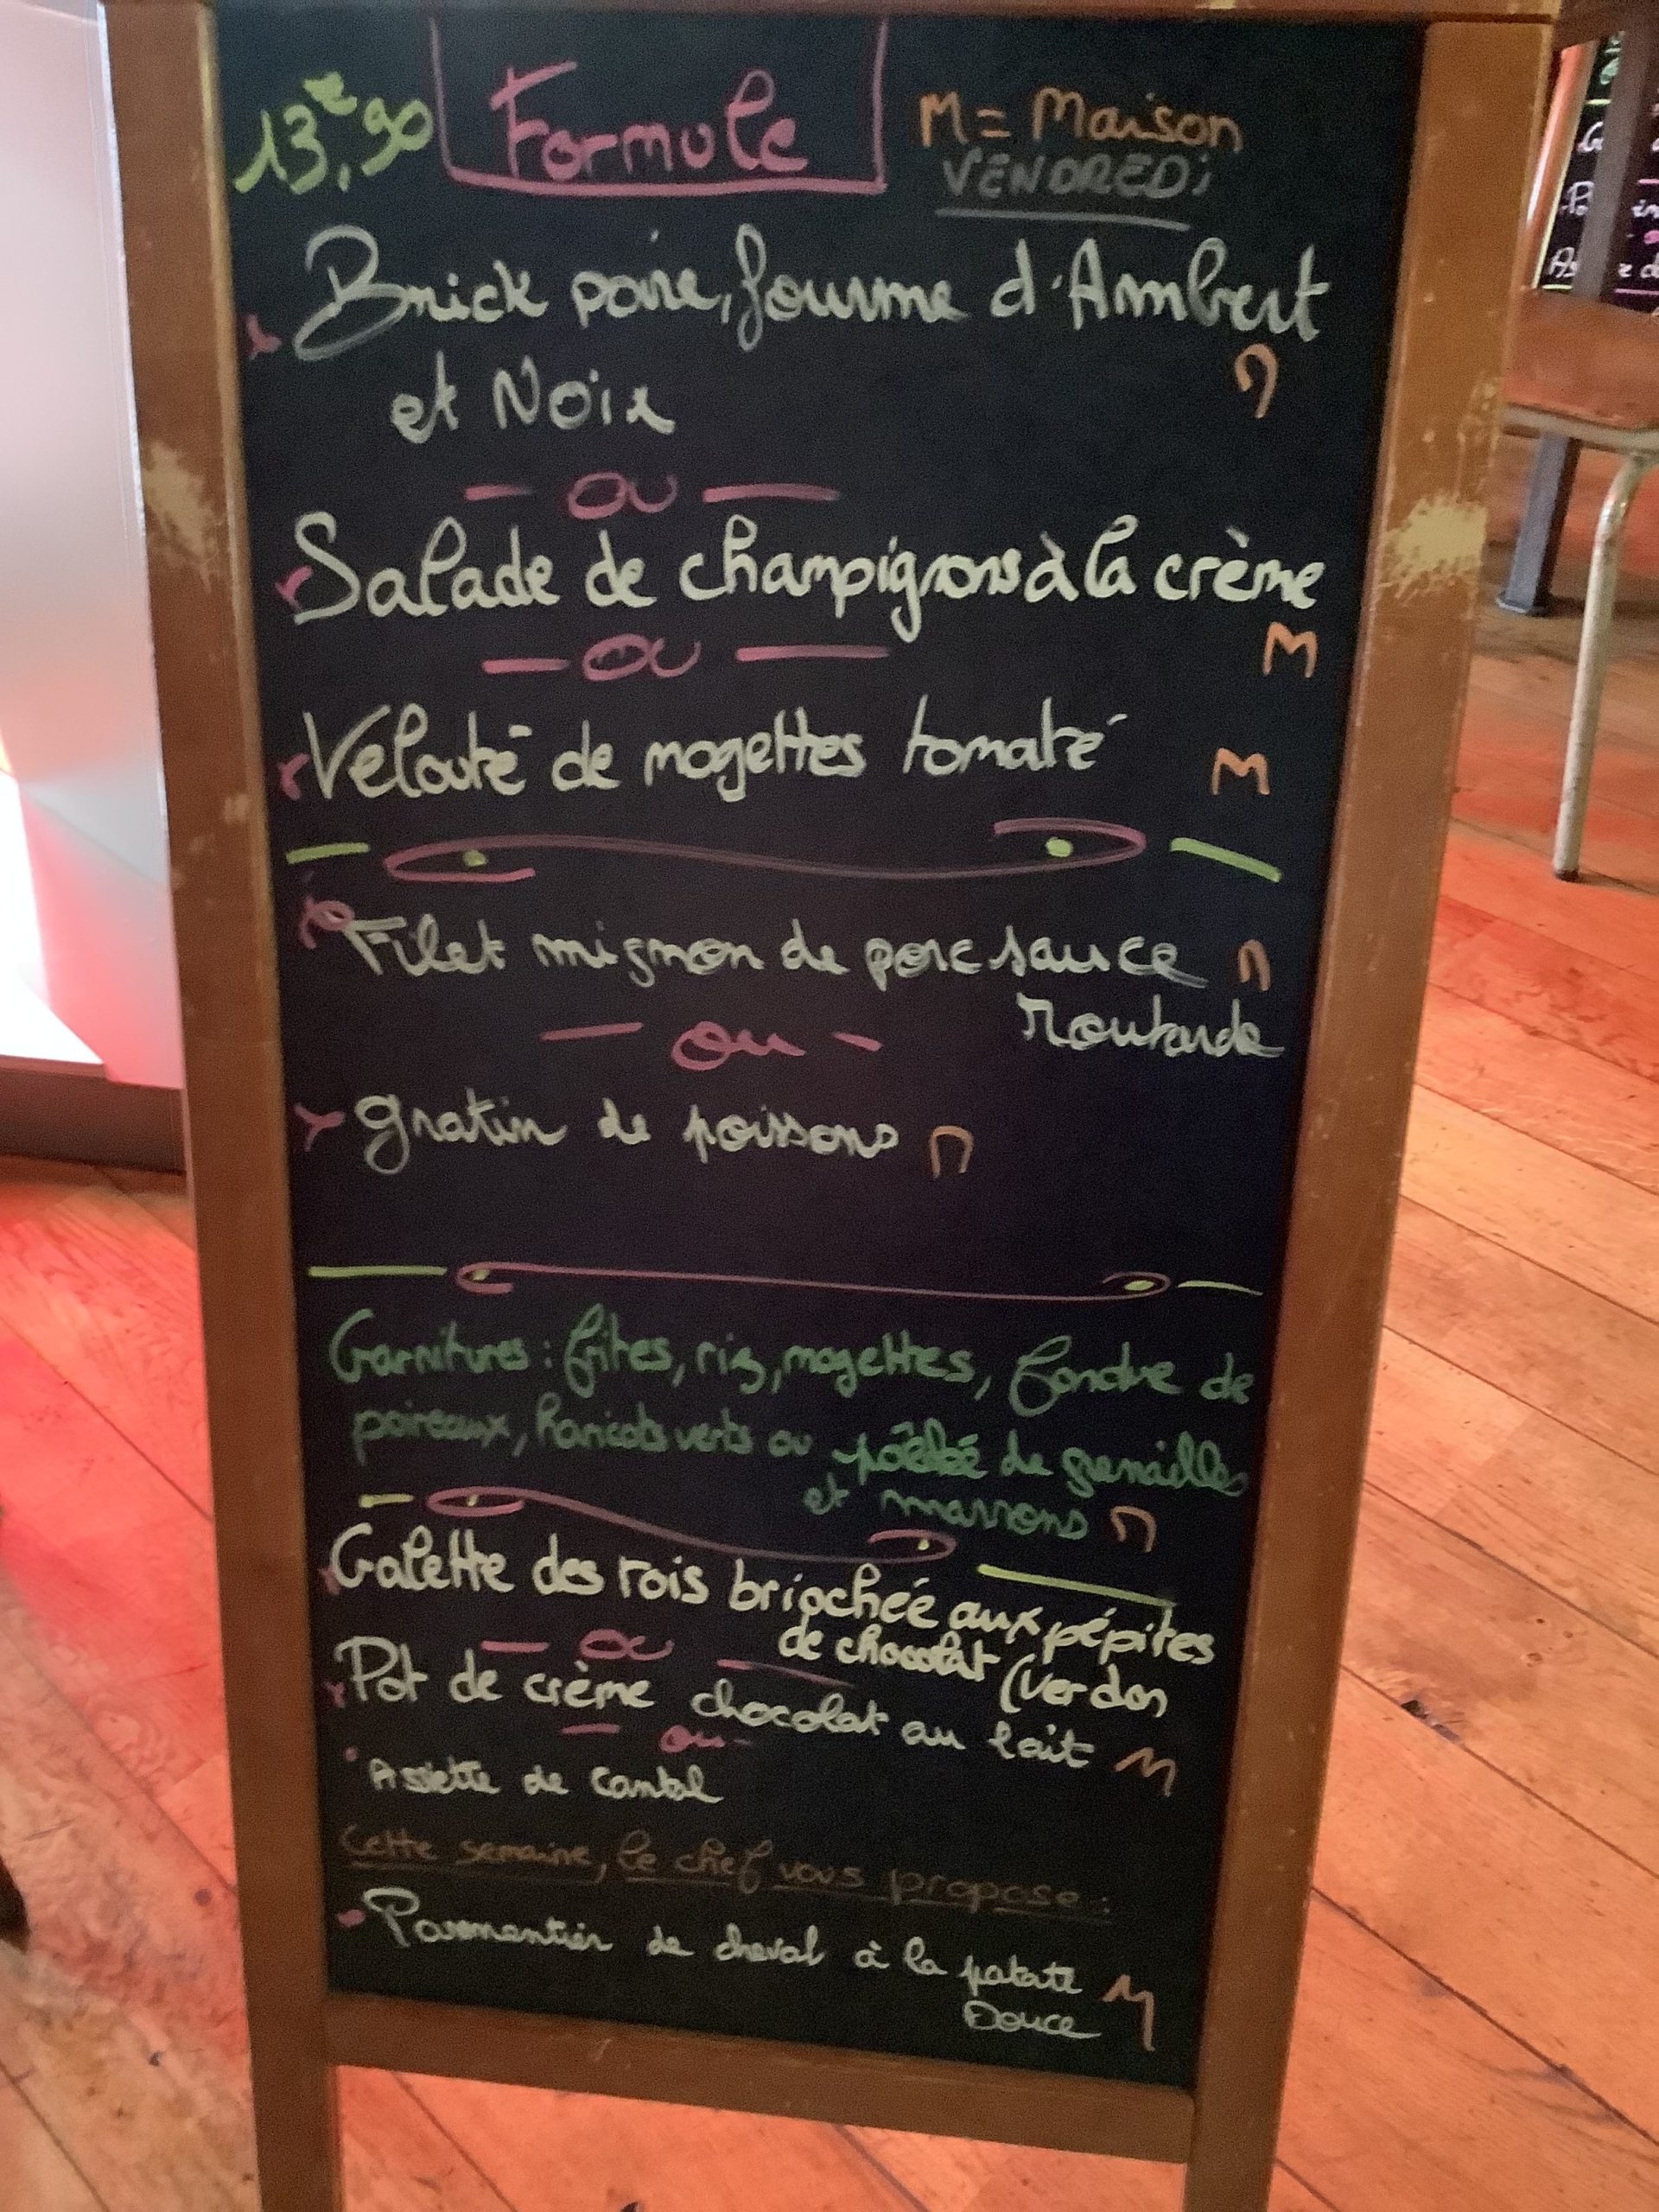 13,€90 Formule M = Maison
VENDREDi
Brick poire, fourme d'Ambert
et Noix M
- ou -
Salade de champignons à la crème
- ou - M
Velouté de mogettes tomaté M
Filet mignon de porc sauce M
Moutarde
- ou -
gratin de poissons M
Garnitures : frites, riz, mogettes, fondue de
poireaux, haricots verts ou poêlée de grenailles
et marrons M
Galette des rois briochée aux pépites
de chocolat (Verdon
- ou -
Pot de crème chocolat au lait M
- ou -
Assiette de Cantal
Cette semaine, le chef vous propose :
Parmentier de cheval à la patate M
Douce